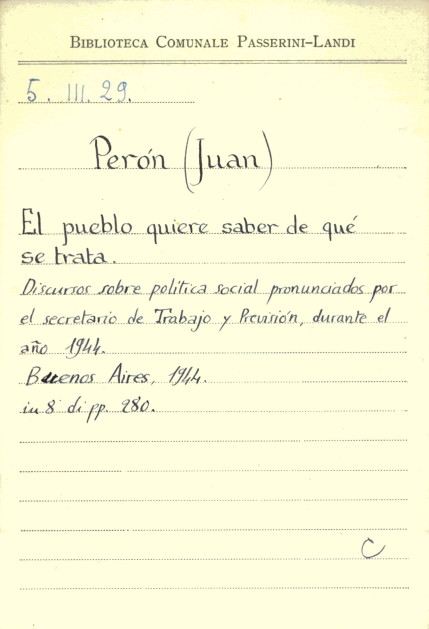 BIBLIOTECA COMUNALE PASSERINI-LANDI
5. III. 29.
Perón (Juan)
El pueblo quiere saber de qué
se trata.
Discursos sobre politica social pronunciados por
el secretario de Trabajo y Previsión, durante el
año 1944.
Buenos Aires, 1944.
in 8° di pp. 280.
C